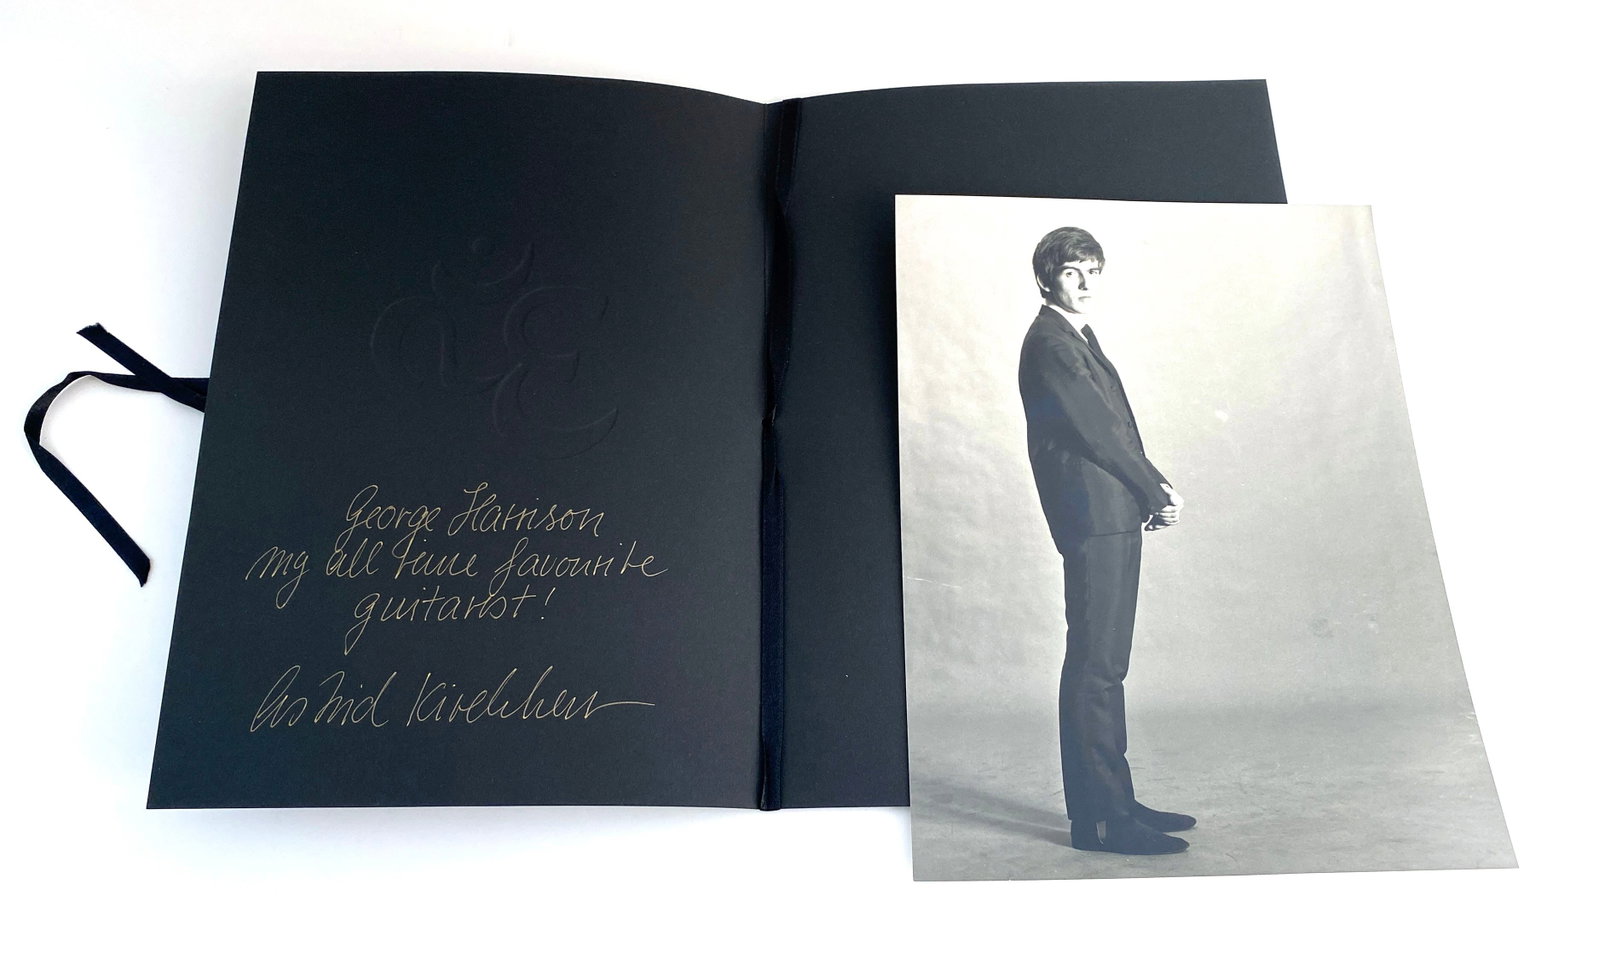 George Harrison
my all time favourite
guitarist!
Astrid Kirchherr